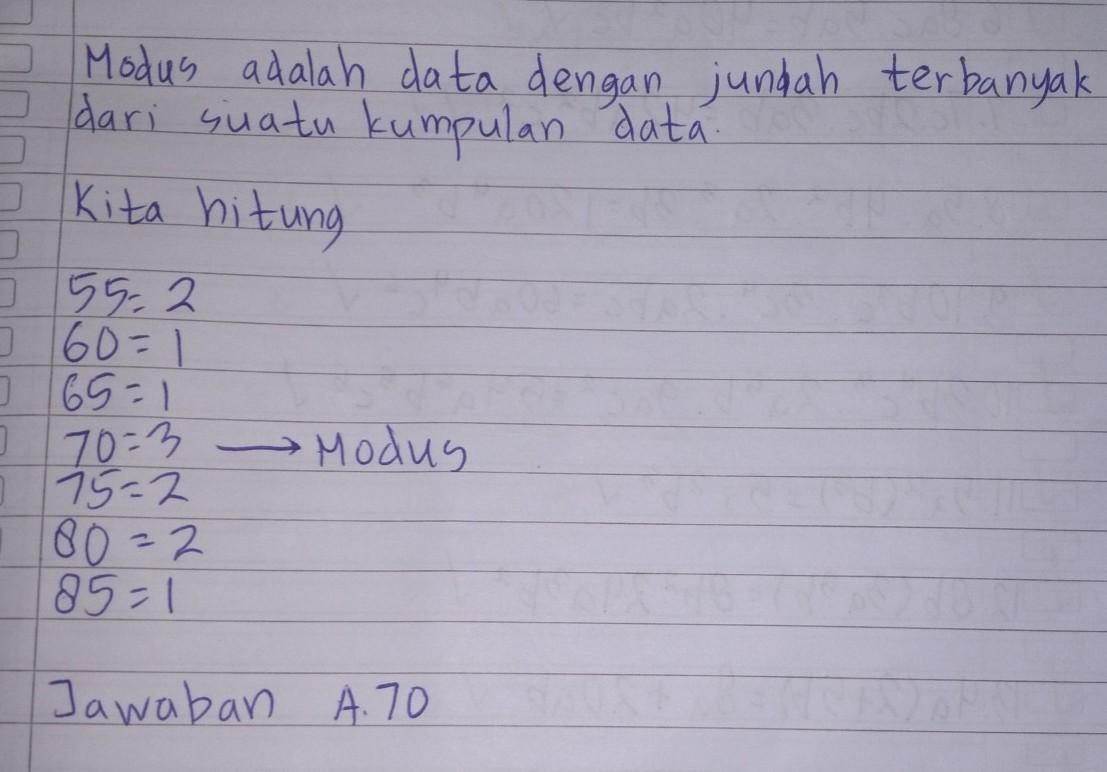 Modus adalah data dengan jumlah terbanyak
dari suatu kumpulan data.
Kita hitung
55= 2
60=1
65=1
70=3 → Modus
75=2
80=2
85=1
Jawaban A.70